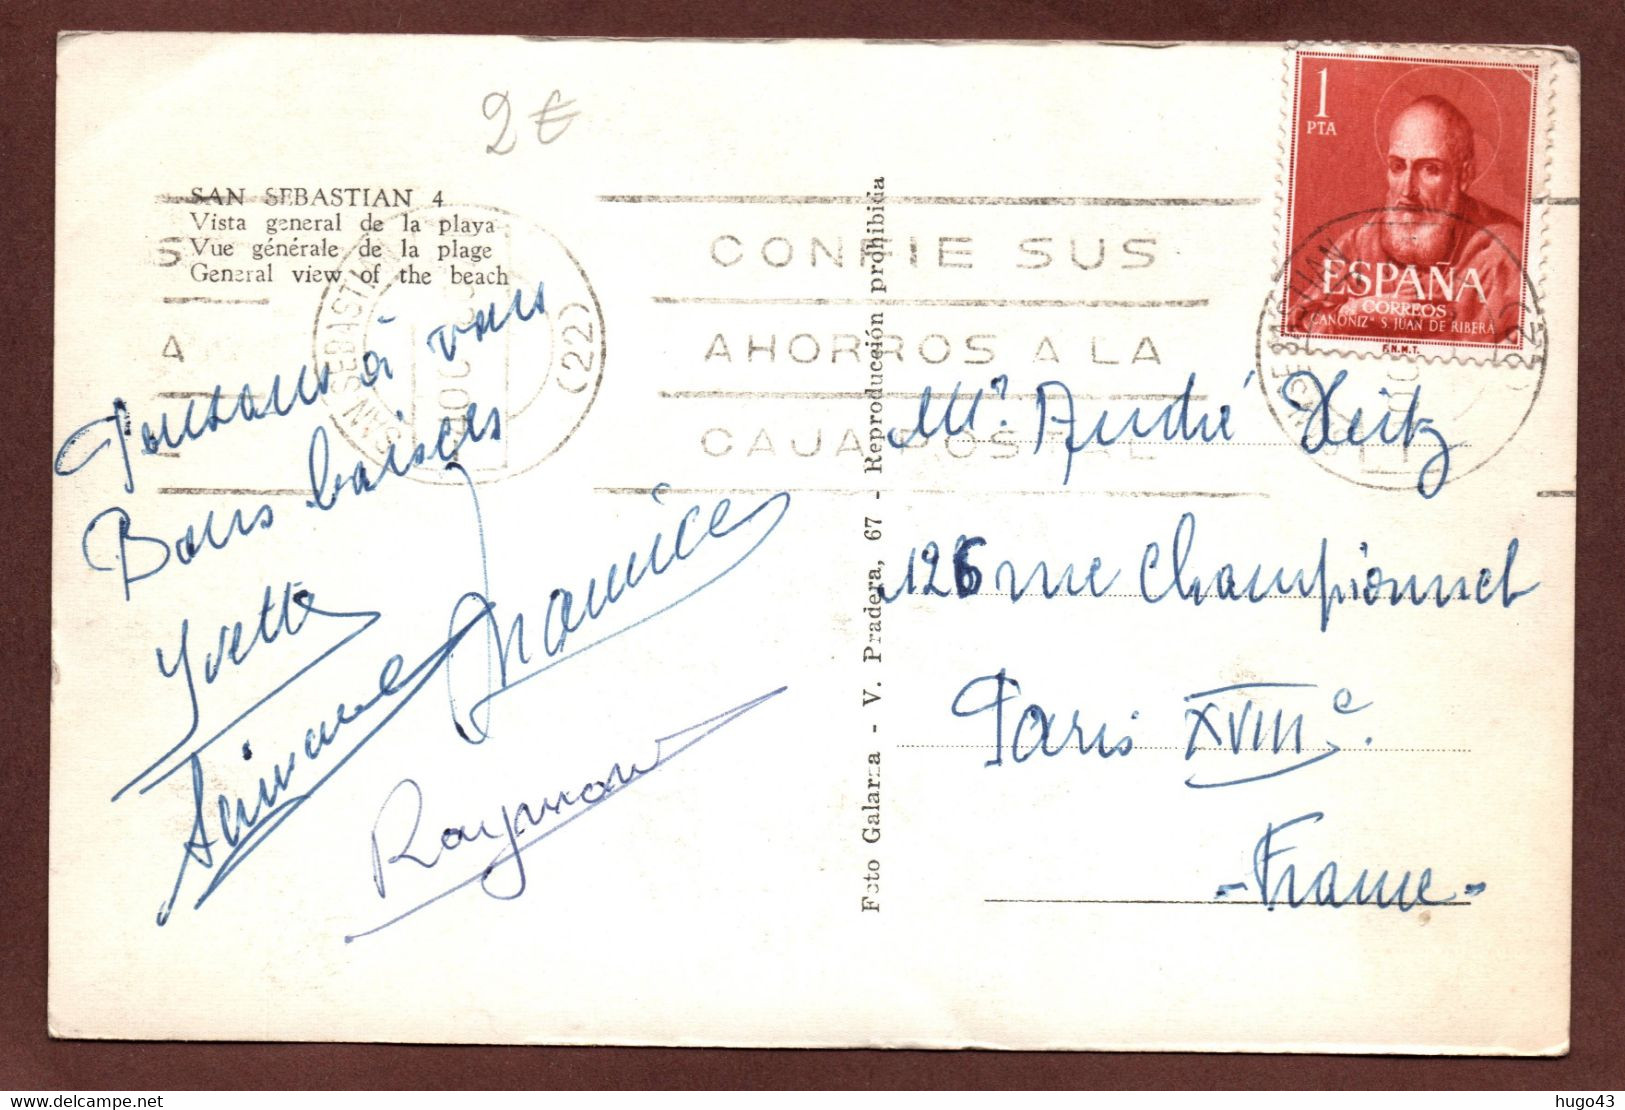 2 €
SAN SEBASTIAN 4
Vista general de la playa
Vue générale de la plage
General view of the beach
Pensons à vous
Bons baisers
Yvette
Simone
Maurice
Raymond
SAN SEBASTIAN
(22)
S
A
CONFIE SUS
AHORROS A LA
CAJA POSTAL
Foto Galarza - V. Pradera, 67 - Reproducción prohibida
1
PTA
ESPAÑA
CORREOS
CANONIZⁿ S. JUAN DE RIBERA
F.N.M.T.
SAN SEBASTIAN
(22)
Mr. André Heitz
126 rue Championnet
Paris XVIIIe.
- France -
hugo43